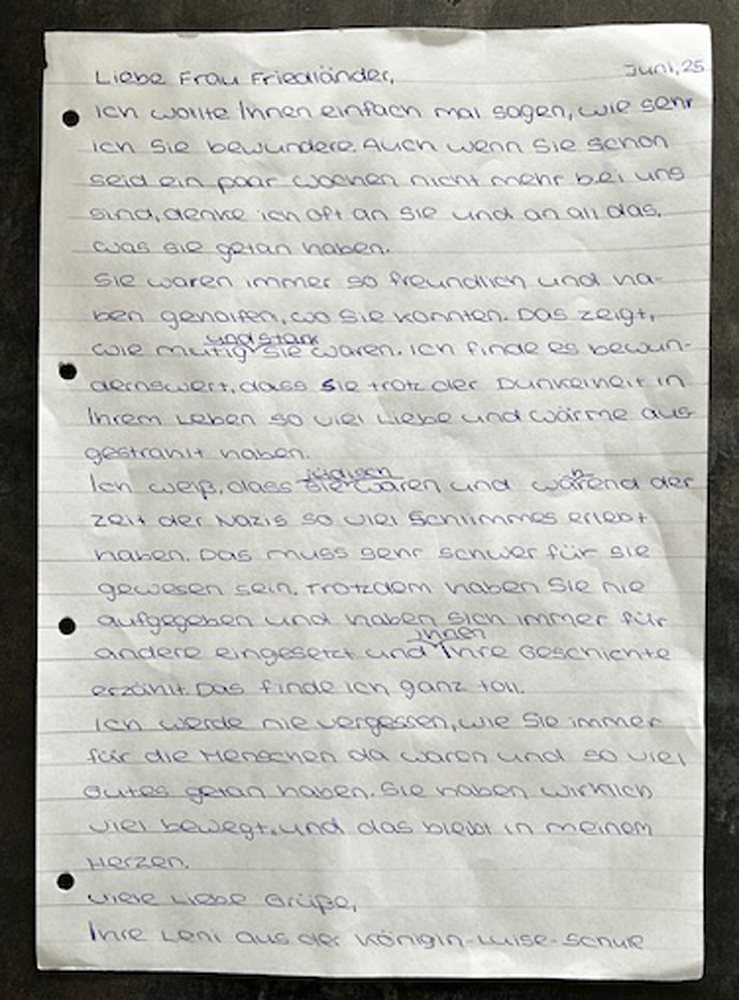 Juni, 25
Liebe Frau Friedländer,
ich wollte Ihnen einfach mal sagen, wie sehr
ich Sie bewundere. Auch wenn Sie schon
seid ein paar Wochen nicht mehr bei uns
sind, denke ich oft an Sie und an all das,
was sie getan haben.
Sie waren immer so freundlich und ha-
ben geholfen, wo Sie konnten. Das zeigt,
und stark
wie mutig sie waren. Ich finde es bewun-
dernswert, dass Sie trotz der Dunkelheit in
Ihrem Leben so viel Liebe und wärme aus
gestrahlt haben.
jüdisch h
Ich weiß, dass sie waren und wärend der
zeit der Nazis so viel Schlimmes erlebt
haben. Das muss sehr schwer für sie
gewesen sein. Trotzdem haben Sie nie
aufgegeben und haben sich immer für
ihnen
andere eingesetzt und Ihre Geschichte
erzählt. Das finde ich ganz toll.
Ich werde nie vergessen, wie Sie immer
für die Menschen da waren und so viel
Gutes getan haben. Sie haben wirklich
viel bewegt, und das bleibt in meinem
Herzen.
Viele Liebe Grüße,
Ihre Leni aus der Königin-Luise-Schule